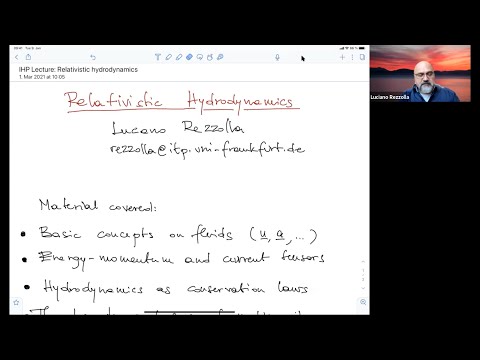 09:41 Tue 8. Jun
IHP Lecture: Relativistic hydrodynamics
1. Mar 2021 at 10:05
Relativistic Hydrodynamics
Luciano Rezzolla
rezzolla@itp.uni-frankfurt.de
Material covered:
• Basic concepts on fluids (u, a, ...)
• Energy-momentum and current tensors
• Hydrodynamics as conservation laws
Luciano Rezzolla